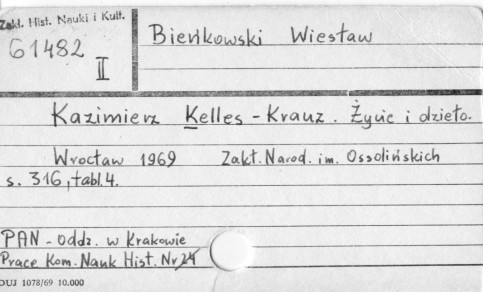 Zakł. Hist. Nauki i Kult.
61482
II
Bieńkowski Wiesław
Kazimierz Kelles-Krauz. Życie i dzieło.
Wrocław 1969 Zakł. Narod. im. Ossolińskich
s. 316, tabl. 4.
PAN - Oddz. w Krakowie
Prace Kom. Nauk Hist. Nr 24
DUJ 1078/69 10.000